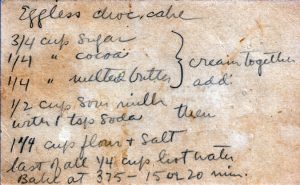 Eggless choc. cake
3/4 cup sugar
1/4 " cocoa
1/4 " melted butter } cream together
add
1/2 cup sour milk
with 1 tsp soda then
1 1/4 cup flour & salt
last of all 1/4 cup hot water
Bake at 375 - 15 or 20 min.